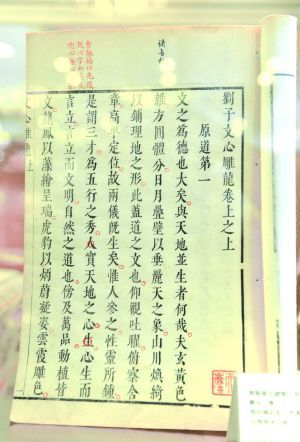 劉子文心雕龍卷上之上
原道第一
文之為德也大矣與天地並生者何哉夫玄黃色
雜方圓體分日月疊璧以垂麗天之象山川煥綺
以鋪理地之形此蓋道之文也仰觀吐曜俯察含
章高卑定位故兩儀既生矣惟人參之性靈所鍾
是謂三才為五行之秀人實天地之心生心生而
言立言立而文明自然之道也傍及萬品動植皆
文龍鳳以藻繪呈瑞虎豹以炳蔚凝姿雲霞雕色
文心雕龍上